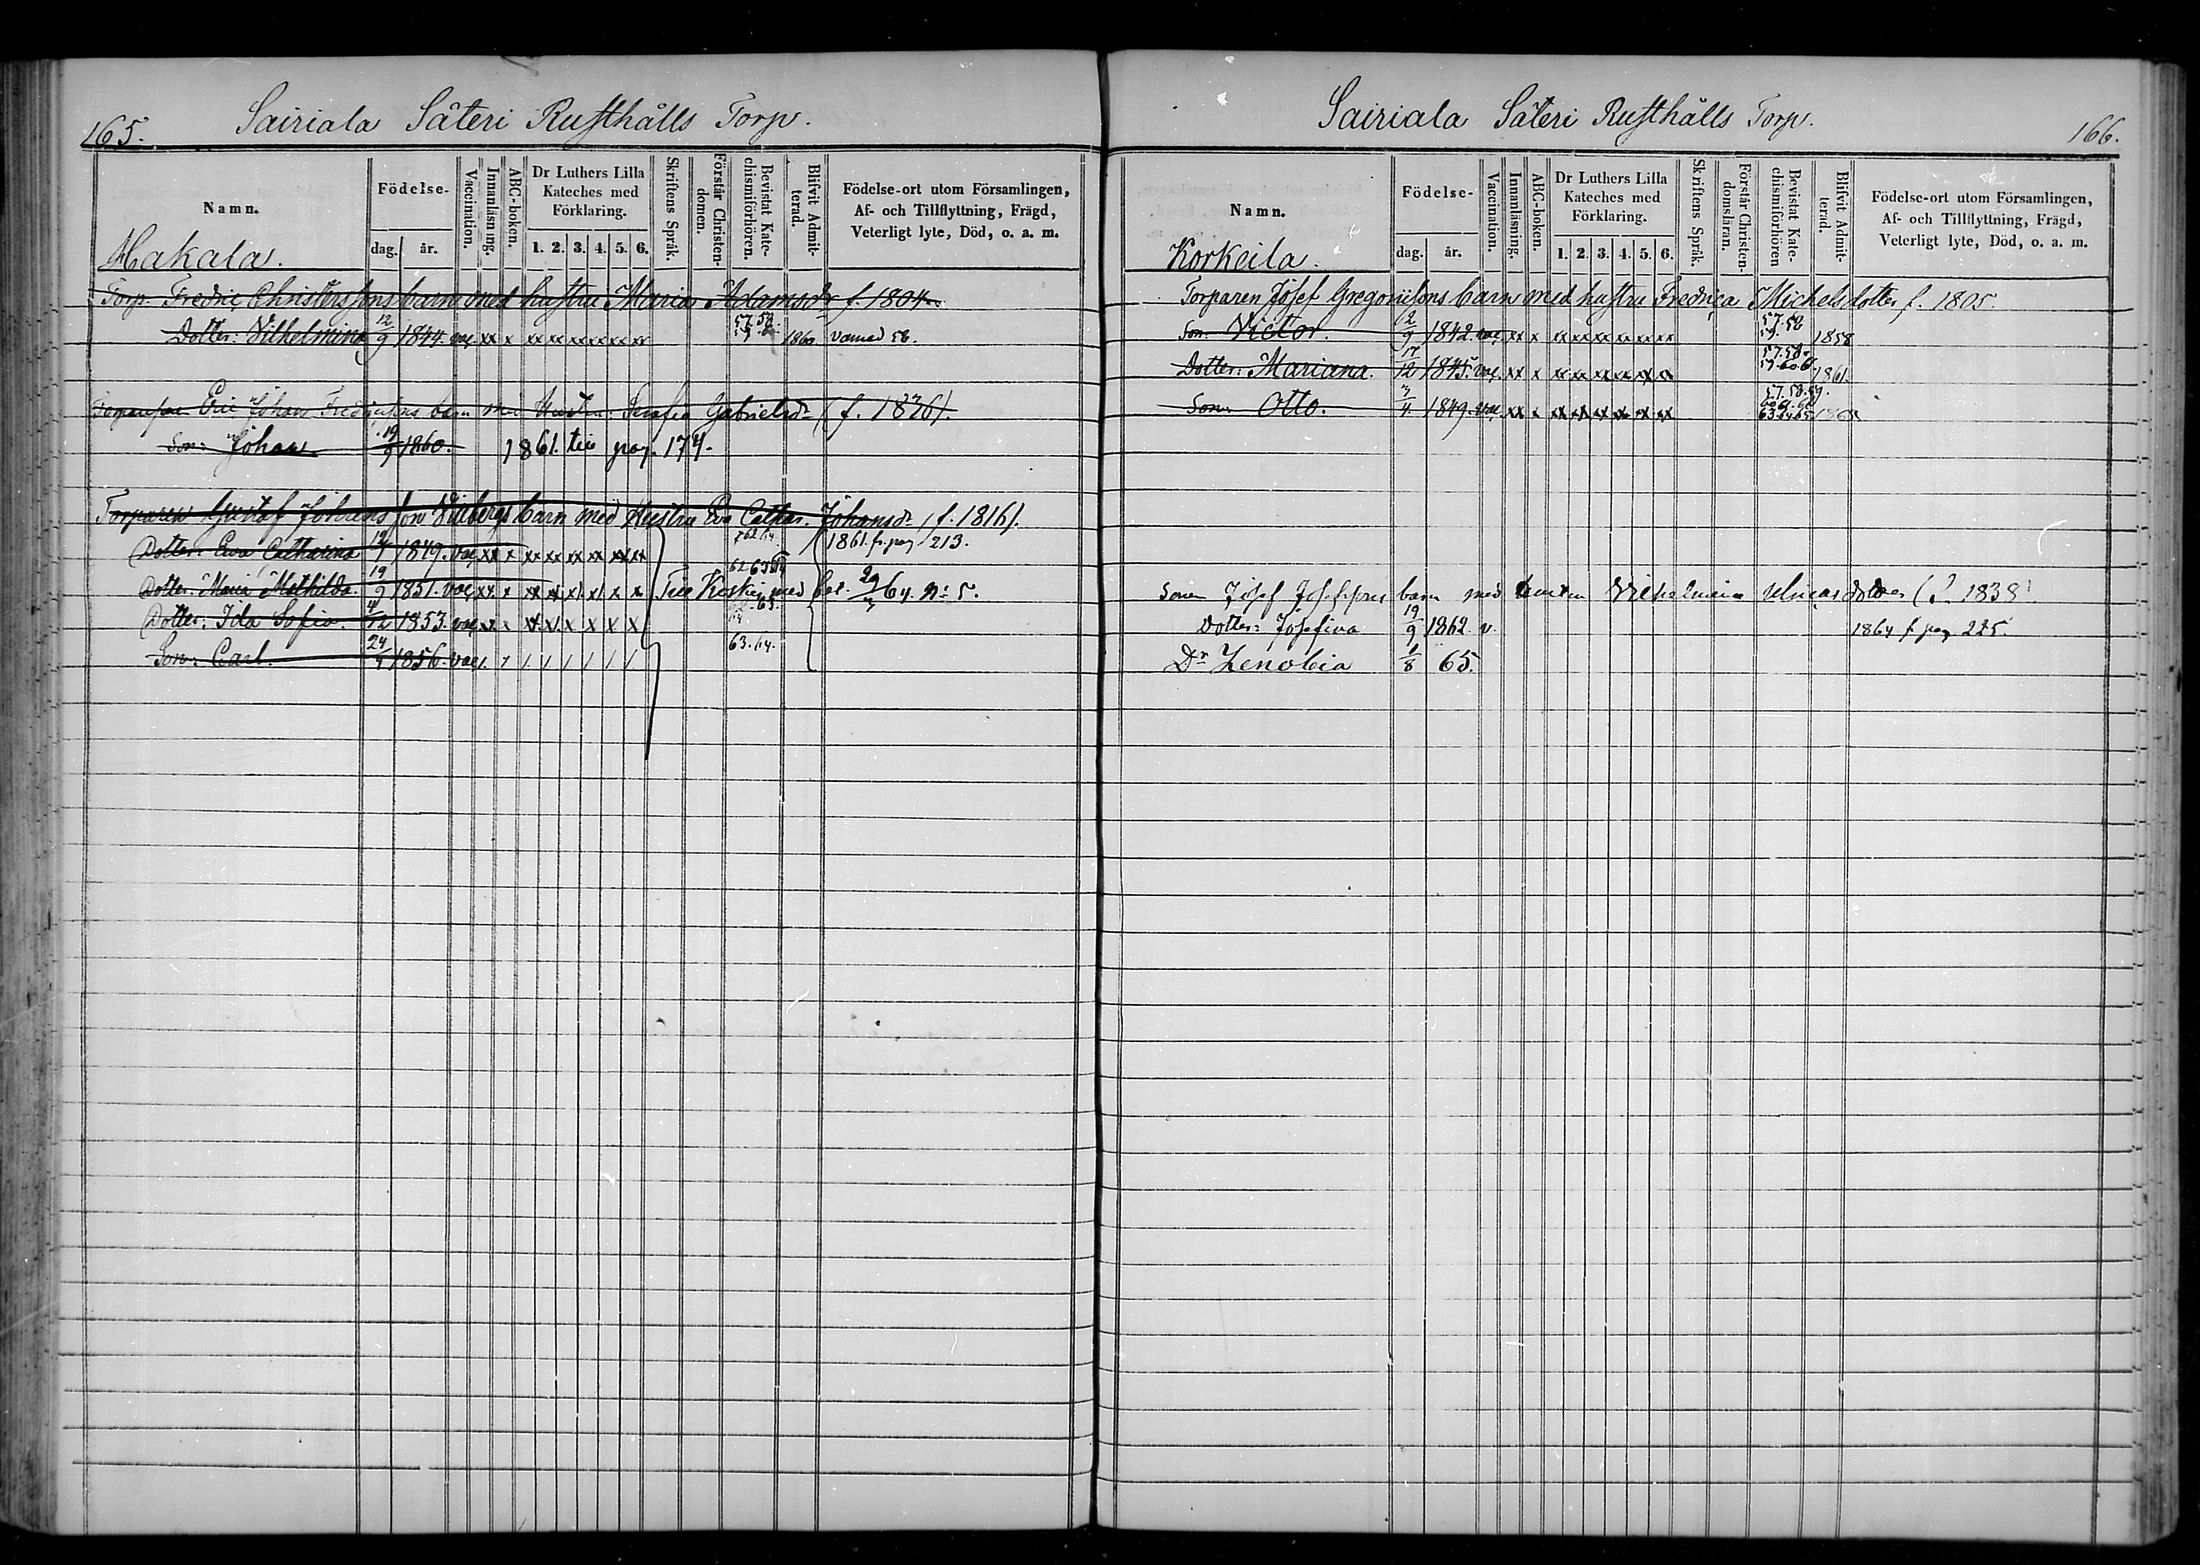 165.
Sairiala Säteri Rusthålls Torp.
Namn.
Födelse-
dag. år.
Vaccination.
Innanläsning.
ABC-boken.
Dr Luthers Lilla Kateches med Förklaring.
1. 2. 3. 4. 5. 6.
Skriftens Språk.
Förstår Christendomen.
Bevistat Katechismiförhören.
Blifvit Admitterad.
Födelse-ort utom Församlingen, Af- och Tillflyttning, Frägd, Veterligt lyte, Död, o. a. m.
Hakala.
Torp. Fredric Christerssons barn med hustru Maria Adamsdr f. 1804
Dotter: Vilhelmina 12/9 1844. vac xx x xx xx xx xx xx xx 57. 58. 1860 58.
Eric Johan barn Gabrielsdr (f. 1826).
Son: Johan 19/9 1860. 1861. till pag. 174.
Torparen Gustaf Johansson barn med Hustru Eva Cathar. Johansdr (f. 1816).
Dotter: Eva Catharina 1849. vac xx x xx xx xx xx xx xx 62 64 1861. fr. pag 213.
Dotter: Maria Mathilda. 19/9 1851. vac xx x x x x x x x 62 63 64 Till Koskis med bet. 29/3 64. No 5.
Dotter: Ida Sofia. 4/12 1853. vac x x x x x x x x 63.
Son: Carl. 24/4 1856. vac 63. 64.
Sairiala Säteri Rusthålls Torp.
166.
Namn.
Födelse-
dag. år.
Vaccination.
Innanläsning.
ABC-boken.
Dr Luthers Lilla Kateches med Förklaring.
1. 2. 3. 4. 5. 6.
Skriftens Språk.
Förstår Christendomsläran.
Bevistat Katechismiförhören
Blifvit Admitterad.
Födelse-ort utom Församlingen, Af- och Tillflyttning, Frägd, Veterligt lyte, Död, o. a. m.
Korkeila.
Torparen Josef Gregoriisons barn med hustru Fredrica Michelsdotter f. 1805
Son: Victor. 1842. vac. xx x xx xx xx xx xx xx 57. 58 59. 1858
Dotter: Mariana. 17/12 1845. vac. xx x xx xx xx xx xx xx 57. 58. 1861.
Son: Otto. 3/4 1849. vac xx x xx xx xx xx xx xx 57. 58. 59. 63 64 65
Sonen Josef Josefssons barn med hustru Vilhelmina dotter (f. 1838)
Dotter: Josefina 19/9 1862. v. 1864 f. pag 225.
Dr Zenobia 1/8 65.